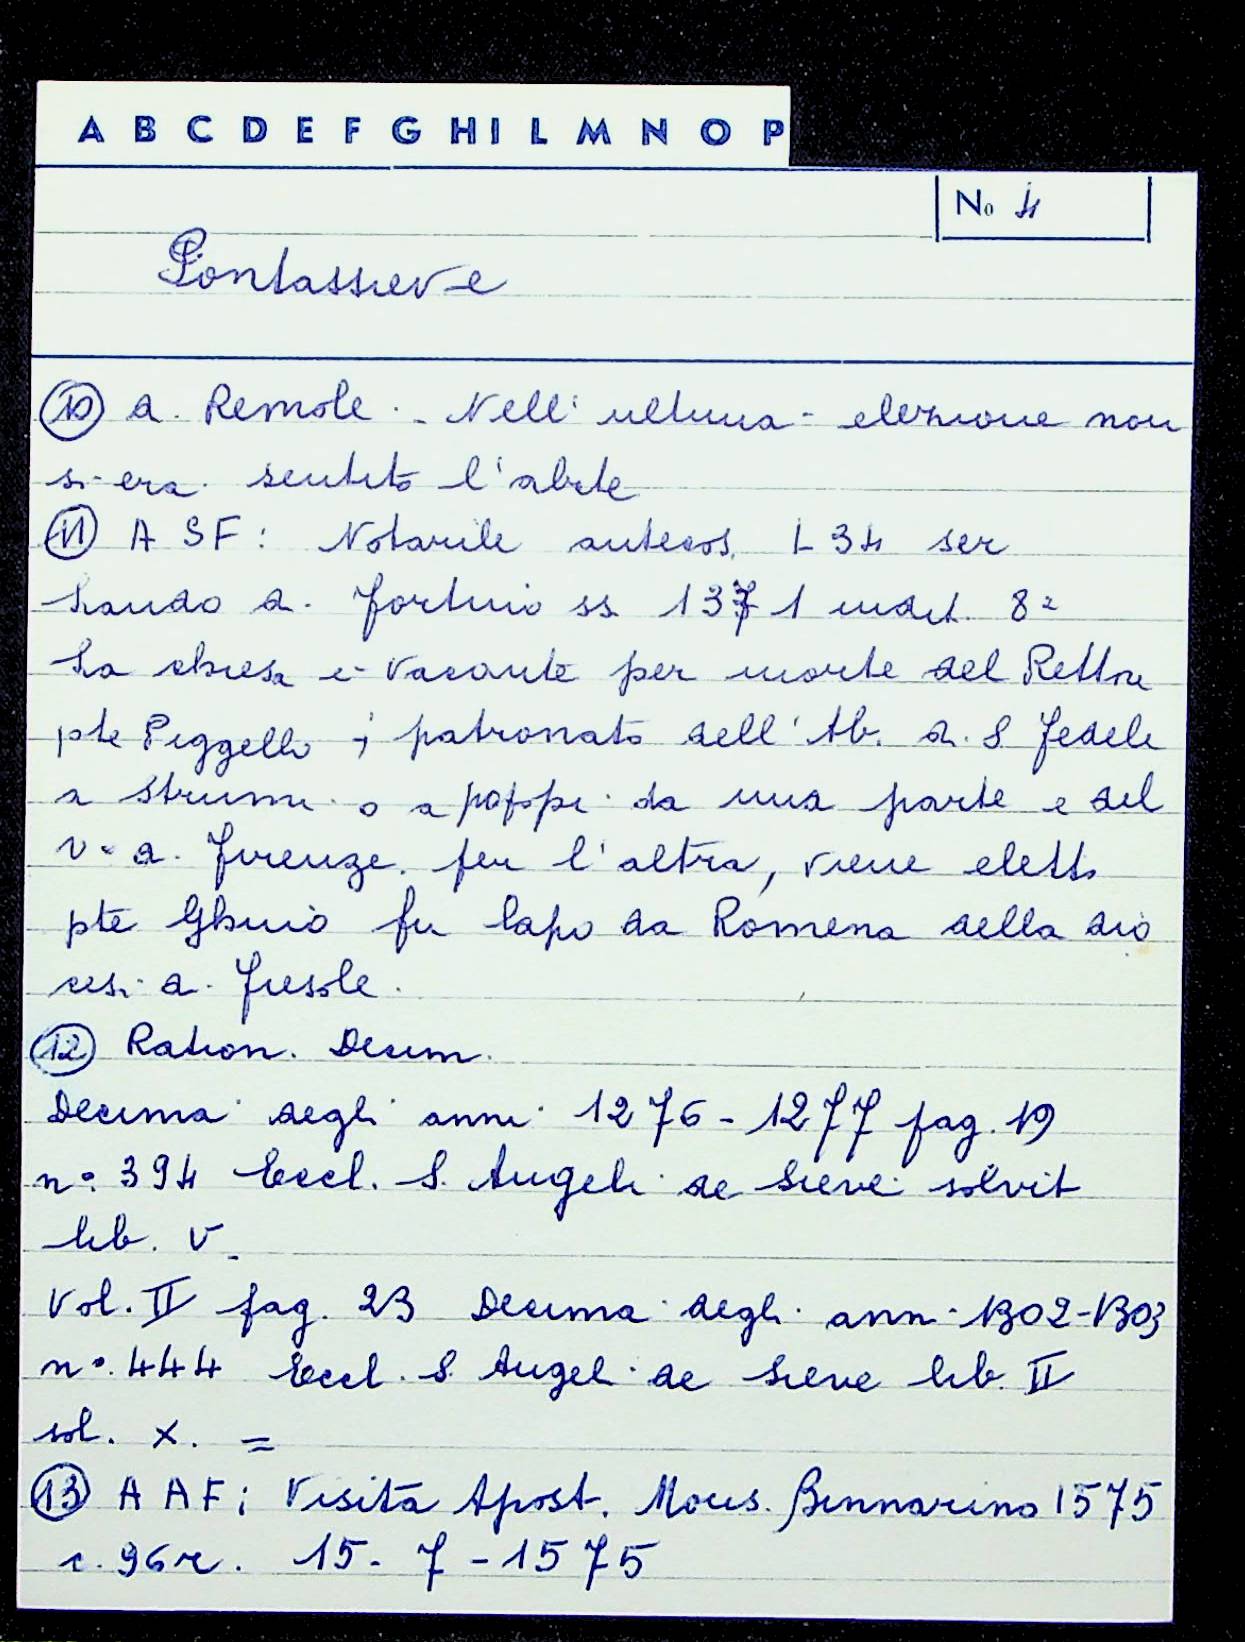 A B C D E F G H I L M N O P
No 4
Pontassieve
10 di Remole. - Nell' ultima elezione non
si era sentito l'abate
11 A S F: Notarile antecos. L 34 ser
Lando di Fortino ss. 1371 indit. 8ª
La chiesa è vacante per morte del Rettore
pte Piggello; patronato dell' Ab. di S Fedele
a Strumi o a Poppi da una parte e del
v. di Firenze per l'altra, viene eletto
pte Ghino fu Lapo da Romena della dio
cesi di Fiesole.
12 Ration. Decim.
Decima degli anni 1276-1277 pag. 19
n°. 394 Eccl. S. Angeli de Sieve solvit
lib. V.
Vol. II pag. 23 Decima degli anni 1302-1303
n°. 444 Eccl. S. Angeli de Sieve lib. II
sol. X. =
13 A A F; Visita Apost. Mons. Binnarino 1575
c. 96 r. 15-7-1575